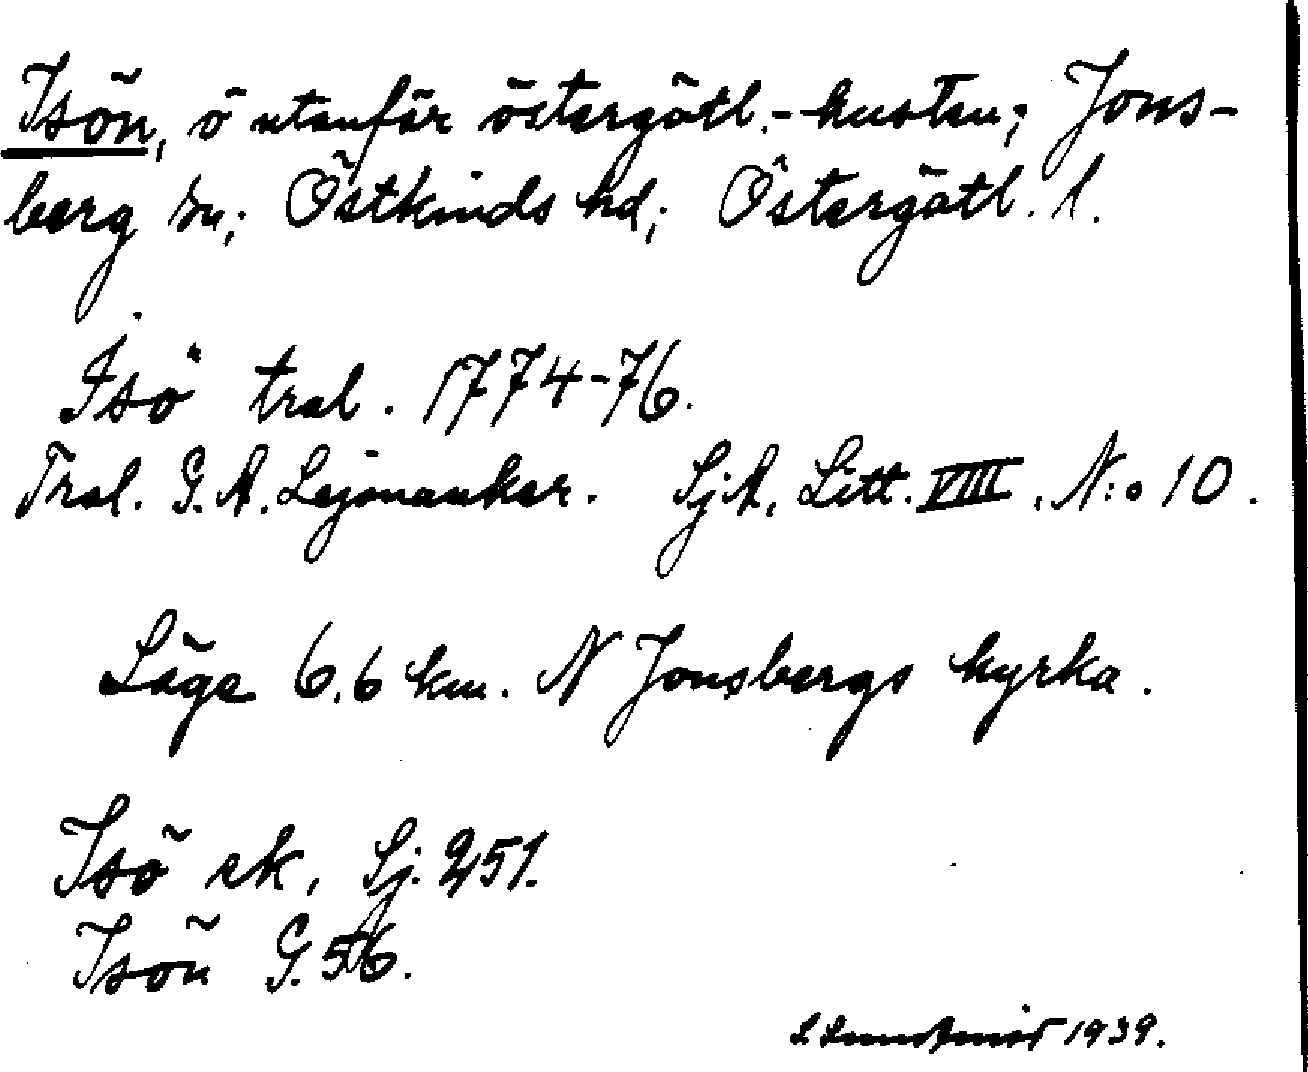 Isön, ö utanför östergötl.-kusten; Jons-
berg sn; Östkinds hd; Östergötl. l.
Isö tral. 1774-76.
Tral. G. A. Lejonanker. SjA, Litt. VIII, N:o 10.
Läge 6,6 km. N Jonsbergs kyrka.
Isö ek, Sj. 251.
Isön G. 56.
1939.